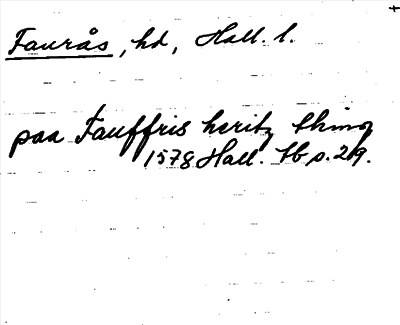 Faurås, hd, Hall. l.
paa Fauffris heritz thing
1578 Hall. tb s. 219.